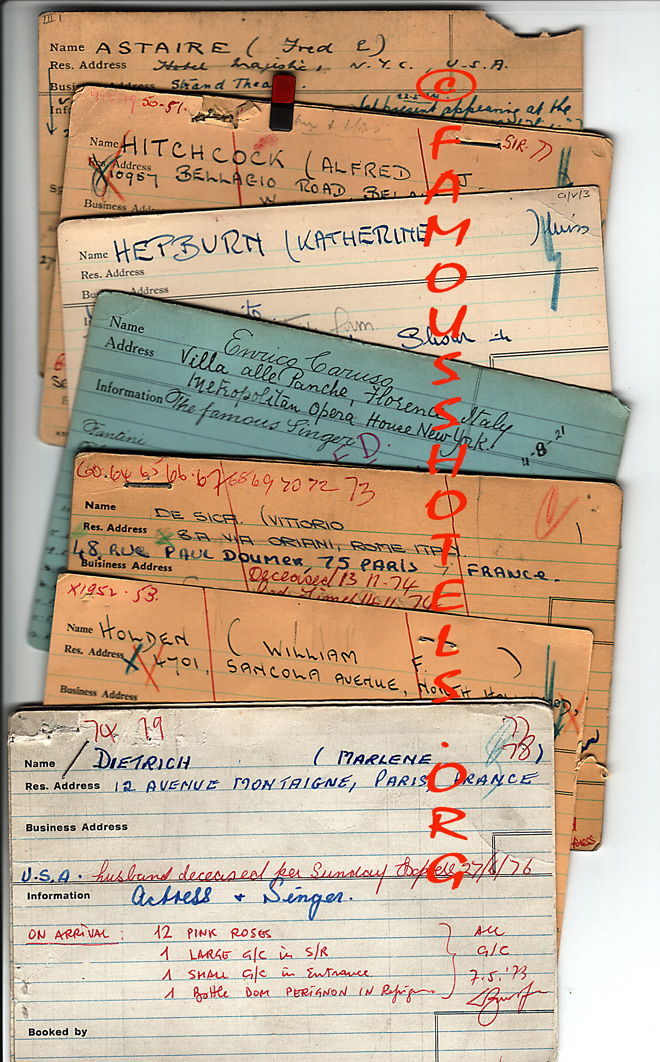 III
Name ASTAIRE ( Fred E )
Res. Address Hotel Majestic, N.Y.C., U.S.A.
Strand Theatre
at present appearing at the
50-51.
SIR. 77
Name HITCHCOCK (ALFRED J.
Res. Address 10957 BELLAGIO ROAD, BEL
Business Address
Name HEPBURN (KATHERINE )
Res. Address
Show
Name Enrico Caruso
Address Villa alle Panche, Florence Italy
Metropolitan Opera House New York.
Information The famous Singer
ED
11-8-21
Fantini
60.64 65 66.67 68 69 70 72 73
Name DE SICA. (VITTORIO )
Res. Address 8A VIA ORIANI, ROME ITALY.
48 RUE PAUL DOUMER, 75 PARIS, FRANCE.
Business Address
Deceased 13.11.74
X1952. 53.
Name HOLDEN ( WILLIAM F. )
Res. Address 4701, SANCOLA AVENUE, NORTH HOLLYWOOD,
Business Address
74 79
78
Name DIETRICH ( MARLENE )
Res. Address 12 AVENUE MONTAIGNE, PARIS, FRANCE
Business Address
U.S.A. husband deceased per Sunday Express 27/6/76
Information Actress & Singer.
ON ARRIVAL : 12 PINK ROSES
1 LARGE G/C in S/R
1 SMALL G/C in Entrance
1 Bottle DOM PERIGNON IN Refrigerator
ALL
G/C
7.5.'73
Booked by
© FAMOUSSHOTELS.ORG